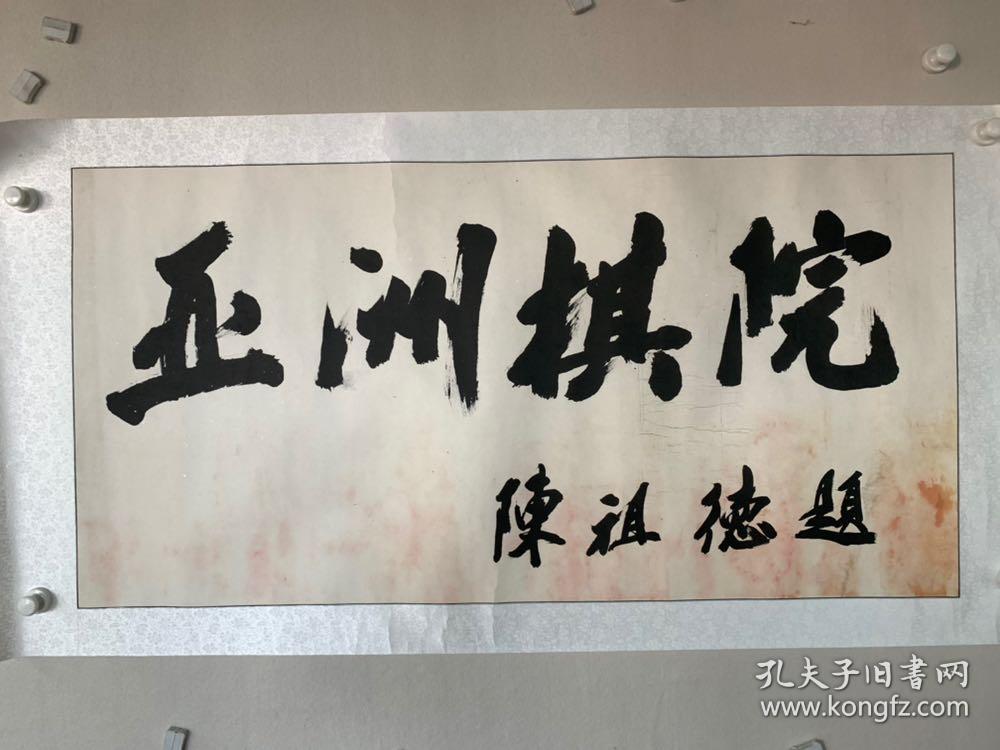 亚洲棋院
陳祖德題
孔夫子旧書网
www.kongfz.com